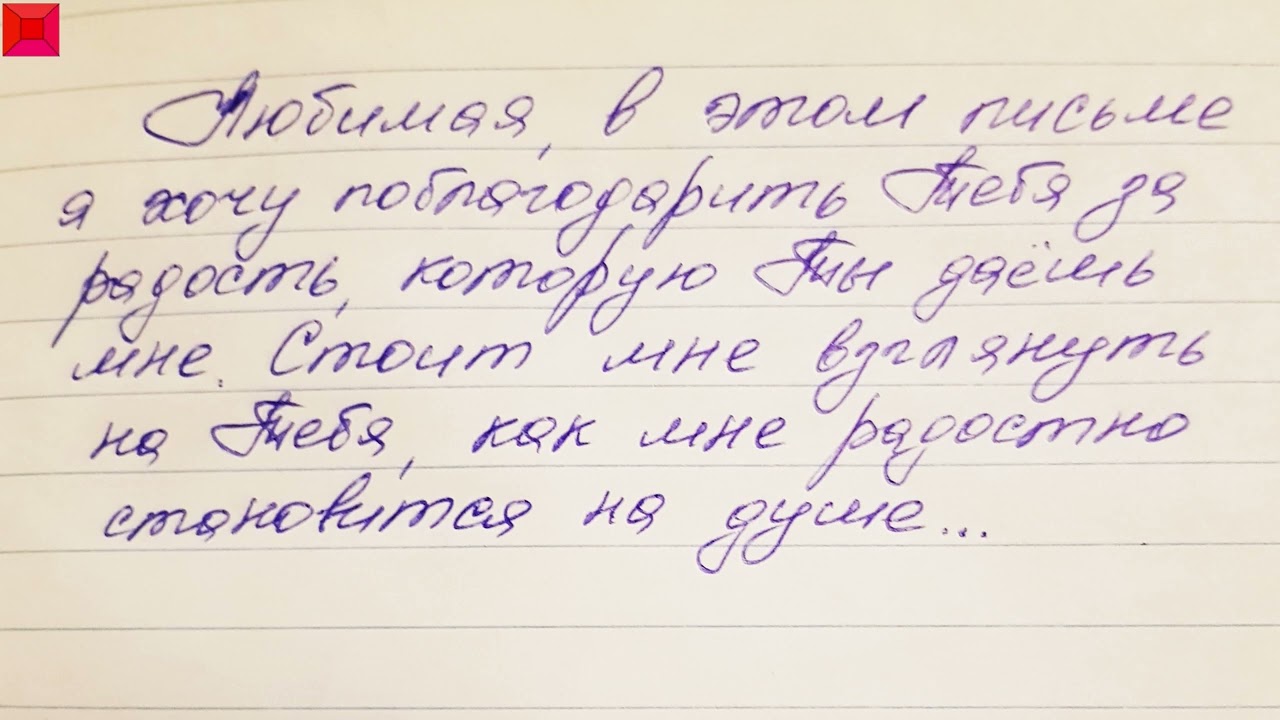 Любимая, в этом письме
я хочу поблагодарить Тебя за
радость, которую Ты даёшь
мне. Стоит мне взглянуть
на Тебя, как мне радостно
становится на душе...